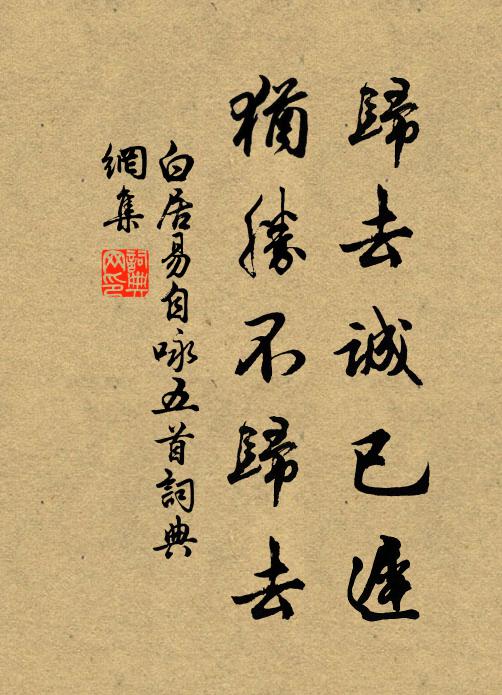 歸去誠已遲
猶勝不歸去
白居易自咏五首詞典
網集
詞典
网印